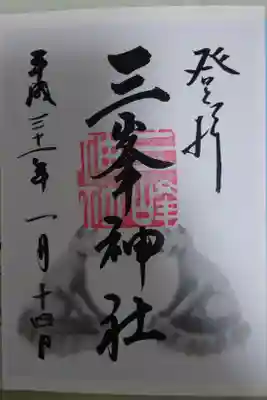 登拝
三峯神社
平成三十一年一月十四日